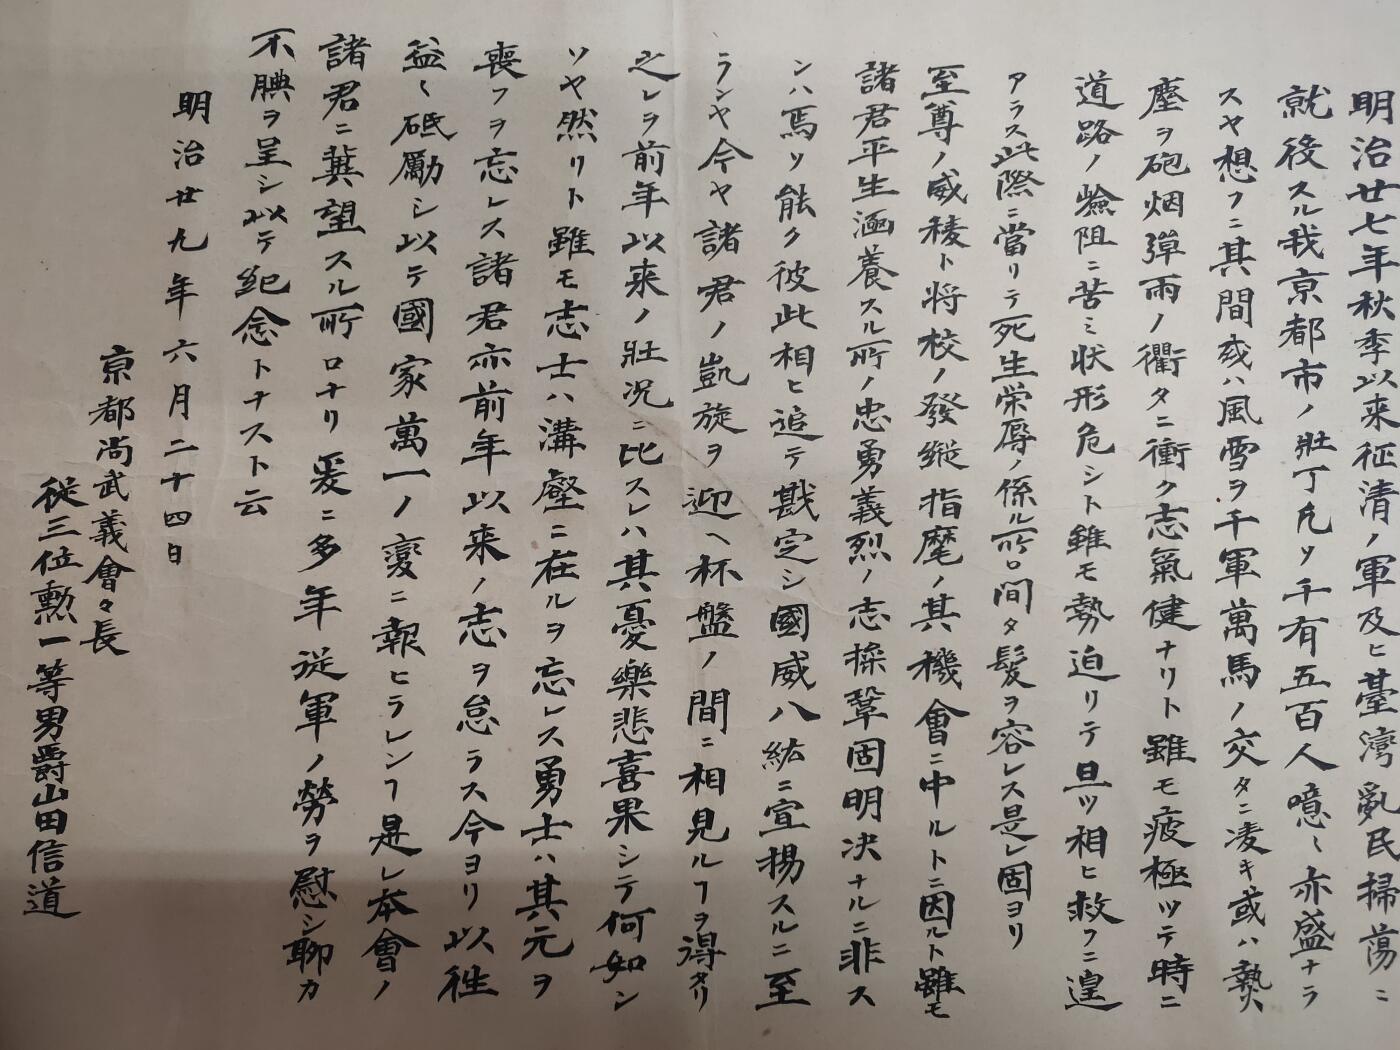 明治廿七年秋季以来征清ノ軍及ヒ臺灣亂民掃蕩ニ
就役スル我京都市ノ壯丁凡ソ千有五百人噫〻亦盛ナラ
スヤ想フニ其間或ハ風雪ヲ千軍萬馬ノ交タニ凌キ或ハ熱
塵ヲ砲烟彈雨ノ衢タニ衝ク志氣健ナリト雖モ疲極ッテ時ニ
道路ノ嶮阻ニ苦ミ状形危シト雖モ勢迫リテ旦ツ相ヒ救フニ遑
アラス此際ニ當リテ死生栄辱ノ係ル所ロ間タ髮ヲ容レス是レ固ヨリ
至尊ノ威稜ト将校ノ發縱指麾ノ其機會ニ中ルトニ因ルト雖モ
諸君平生涵養スル所ノ忠勇義烈ノ志操鞏固明决ナルニ非ス
ンハ焉ソ能ク彼此相ヒ追テ戡定シ國威八紘ニ宣揚スルニ至
ランヤ今ヤ諸君ノ凱旋ヲ迎ヘ杯盤ノ間ニ相見ルヿヲ得タリ
之レヲ前年以来ノ壯况ニ比スレハ其憂樂悲喜果シテ何如ン
ソヤ然リト雖モ志士ハ溝壑ニ在ルヲ忘レス勇士ハ其元ヲ
喪フヲ忘レス諸君亦前年以来ノ志ヲ怠ラス今ヨリ以徃
益〻砥勵シ以テ國家萬一ノ變ニ報ヒラレンヿ是レ本會ノ
諸君ニ冀望スル所ロナリ爰ニ多年従軍ノ勞ヲ慰シ聊カ
不腆ヲ呈シ以テ紀念トナスト云
明治廿九年六月二十四日
京都尚武義會々長
従三位勲一等男爵山田信道